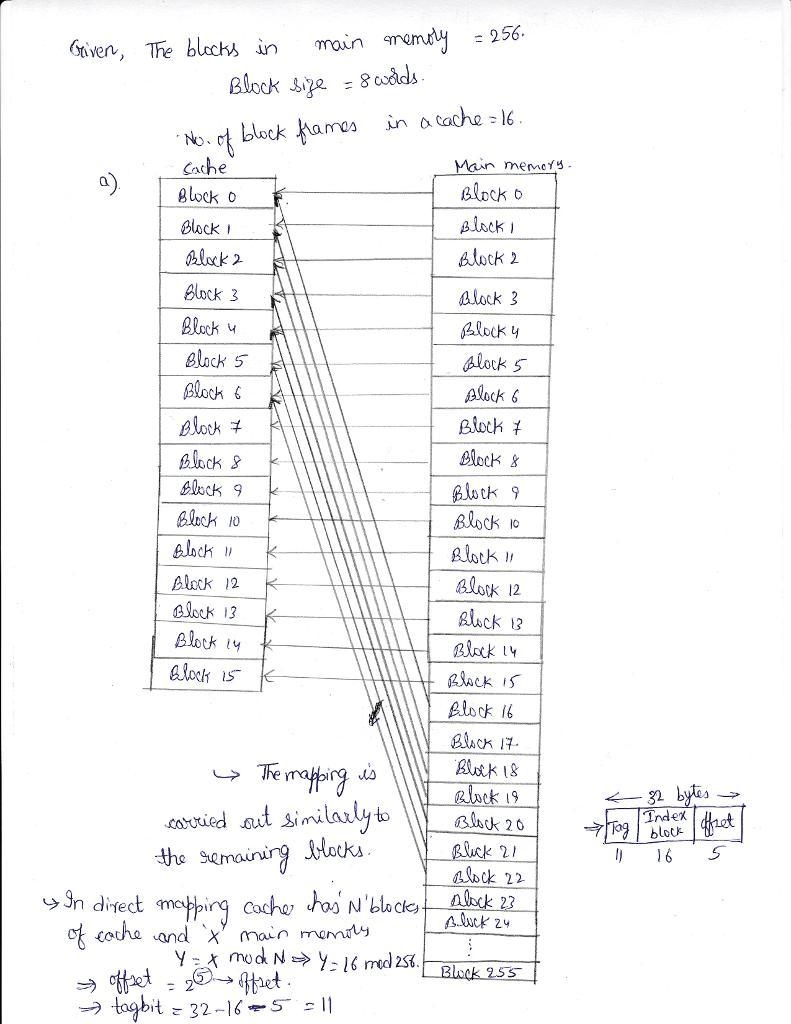 Given, The blocks in main memory = 256.
Block size = 8 words.
No. of block frames in a cache = 16.
a).
Cache
Block 0
Block 1
Block 2
Block 3
Block 4
Block 5
Block 6
Block 7
Block 8
Block 9
Block 10
Block 11
Block 12
Block 13
Block 14
Block 15
Main memory.
Block 0
Block 1
Block 2
Block 3
Block 4
Block 5
Block 6
Block 7
Block 8
Block 9
Block 10
Block 11
Block 12
Block 13
Block 14
Block 15
Block 16
Block 17.
Block 18
Block 19
Block 20
Block 21
Block 22
Block 23
Block 24
⋮
Block 255
↳ The mapping is
carried out similarly to
the remaining blocks.
← 32 bytes →
⇒ Tag Index block offset
11 16 5
↳ In direct mapping cache has 'N' blocks
of cache and 'X' main memory
Y = X mod N ⇒ Y = 16 mod 256.
⇒ offset = 2⑤ → offset.
⇒ tagbit = 32 - 16 - 5 = 11